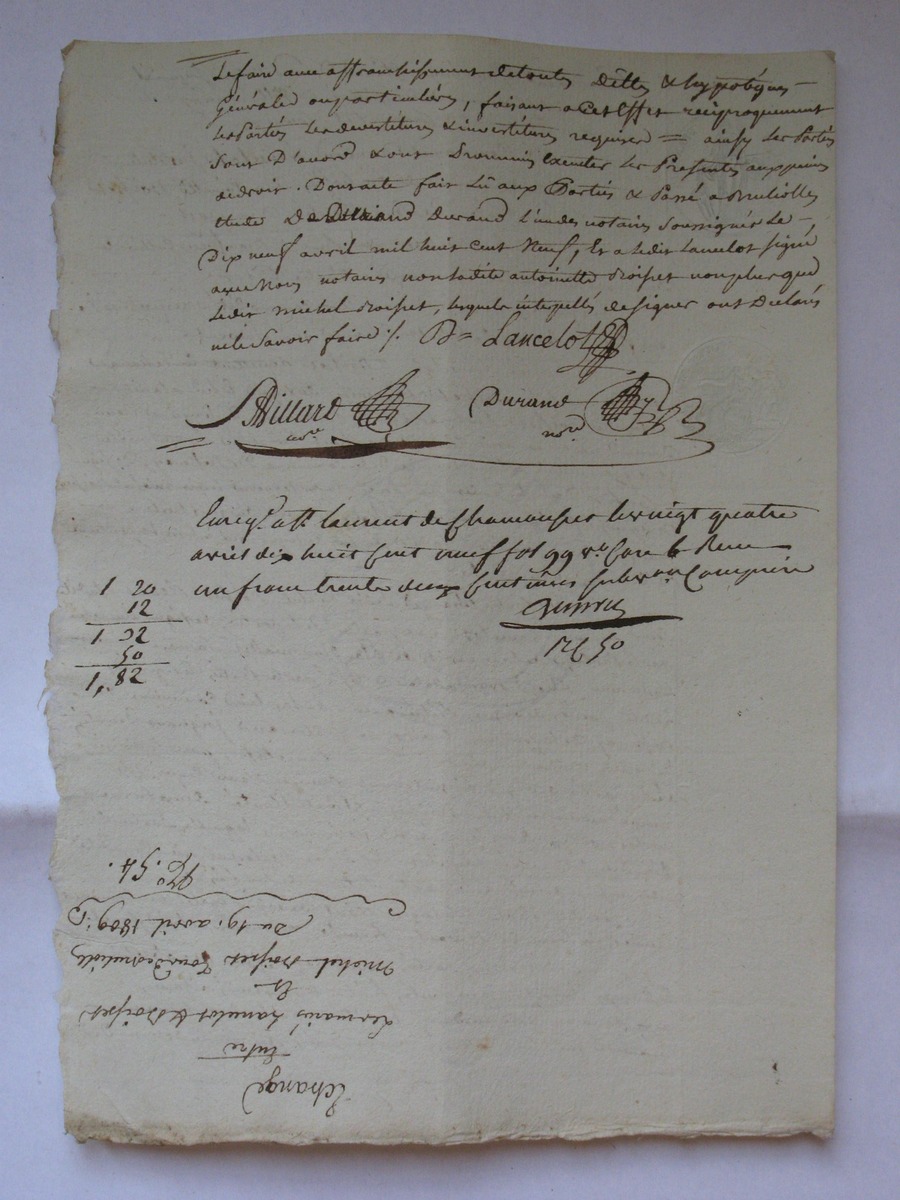 Le faire avec affranchissement de toutes dettes & hypotèques
Générales ou particulières, faisant a cet effet réciproquement
les Parties les devestitures & investitures requises = ainsy les Parties
sont D'accord & ont Promis exécuter les Présentes aux peines
de droit. Dont acte fait Lû aux Parties & Passé a Brulliolles
étude De Durand L'un des notaires soussignés Le
Dix neuf avril mil huit cent Neuf, Et a ledit Lancelot signé
avec Nous notaires non ladite antoinette non plus que
ledit michel lesquels interpellés de signer ont Déclaré
ne le Savoir faire ./. B= Lancelot
Billard Durand
nore nore
Enregé a St Laurent de Chamousset le vingt quatre
avril dix huit cent neuf fol 99 vo Case 6 Reçu
un franc trente deux centimes subvon Comprise
1 20
12
1 32
50
1,82
50
Echange
Entre
Les mariés Lancelot &
Et
michel
Du 19. avril 1809.
No. 54.